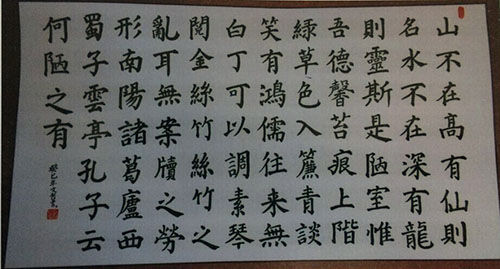 山不在高有仙則
名水不在深有龍
則靈斯是陋室惟
吾德馨苔痕上階
綠草色入簾青談
笑有鴻儒往來無
白丁可以調素琴
閱金絲竹絲竹之
亂耳無案牘之勞
形南陽諸葛廬西
蜀子雲亭孔子云
何陋之有
癸巳年